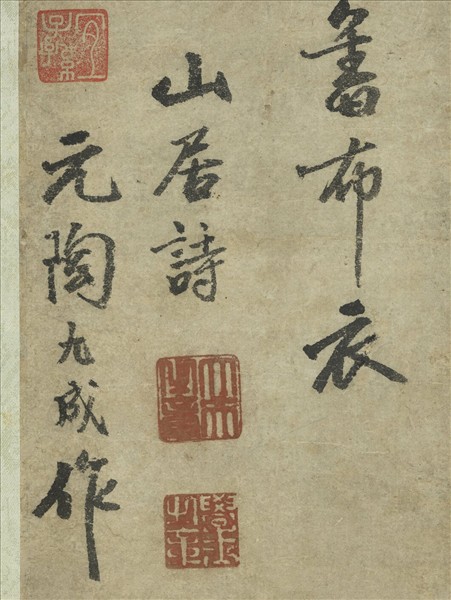 書布衣
山居詩
元陶九成作